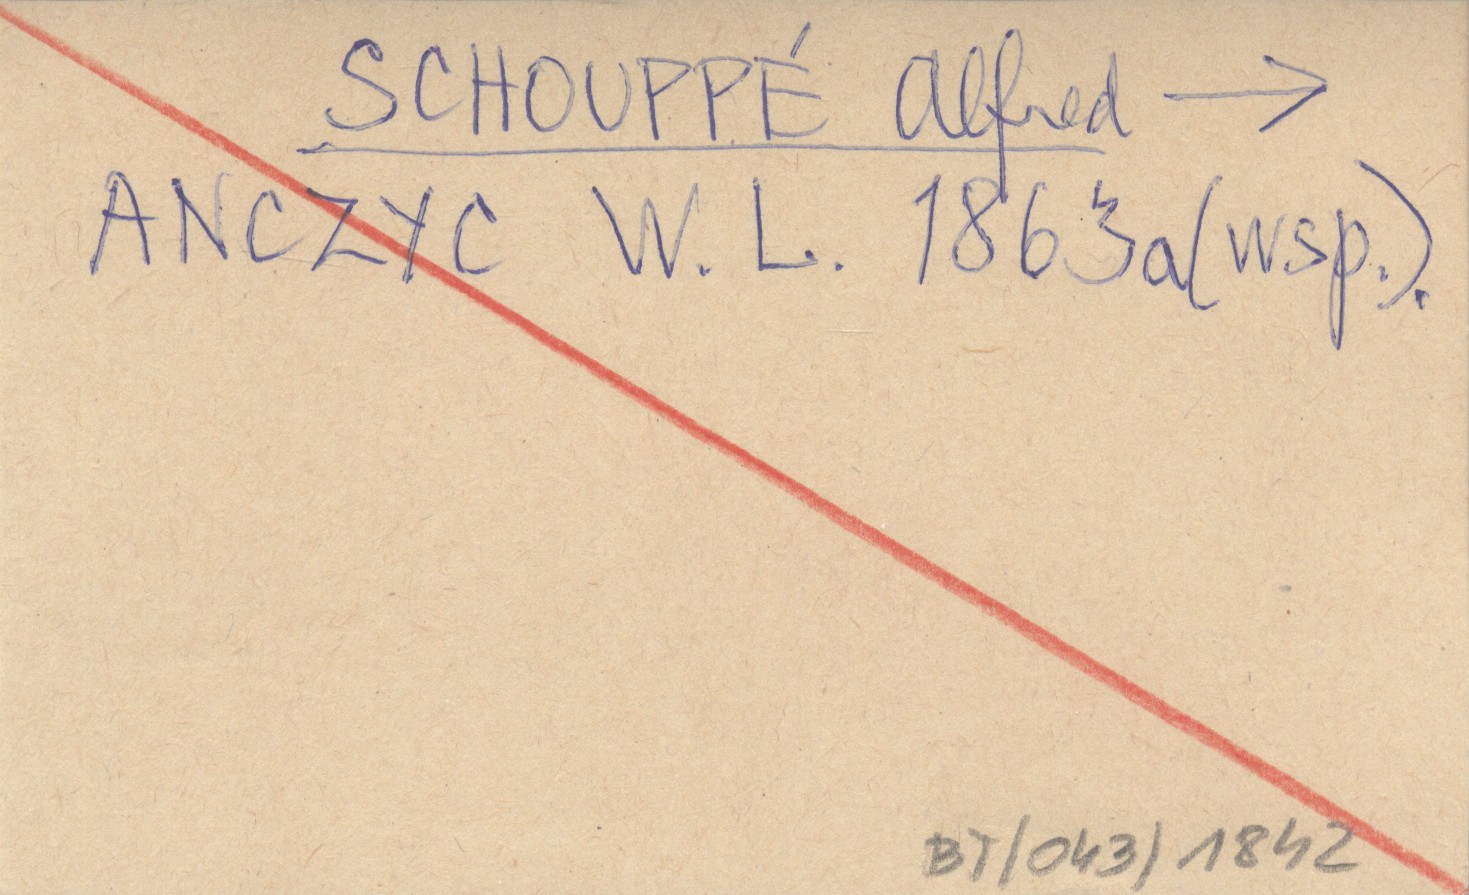 SCHOUPPÉ Alfred →
ANCZYC W. L. 1863a (wsp.).
BT/043/1842